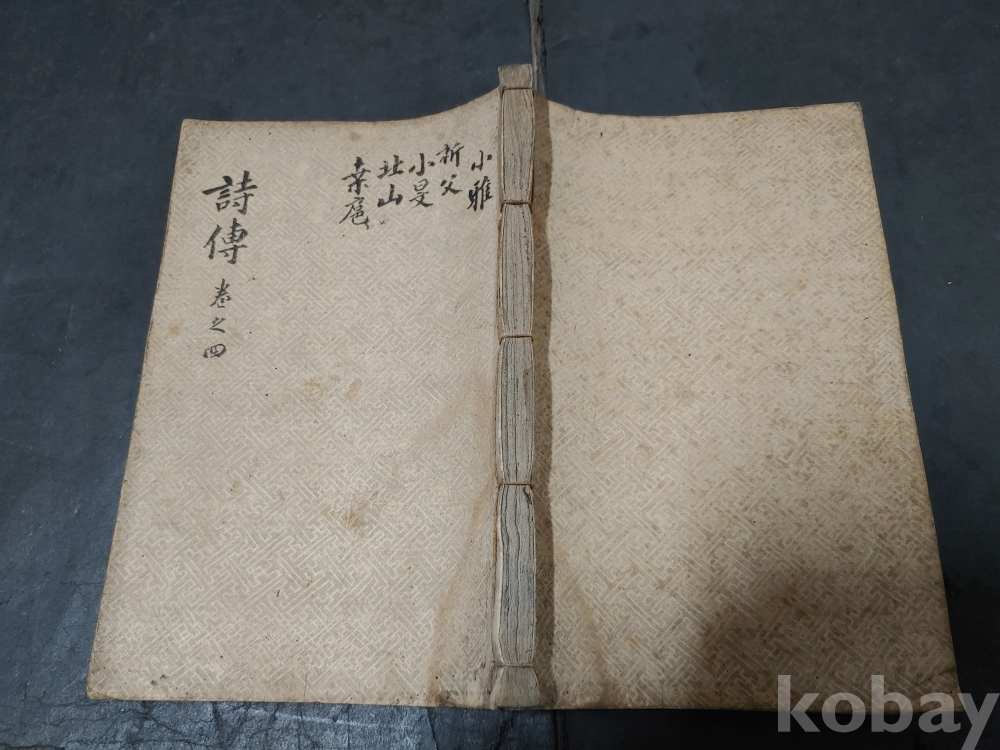 小雅
祈父
小旻
北山
桑扈
詩傳 卷之四
kobay